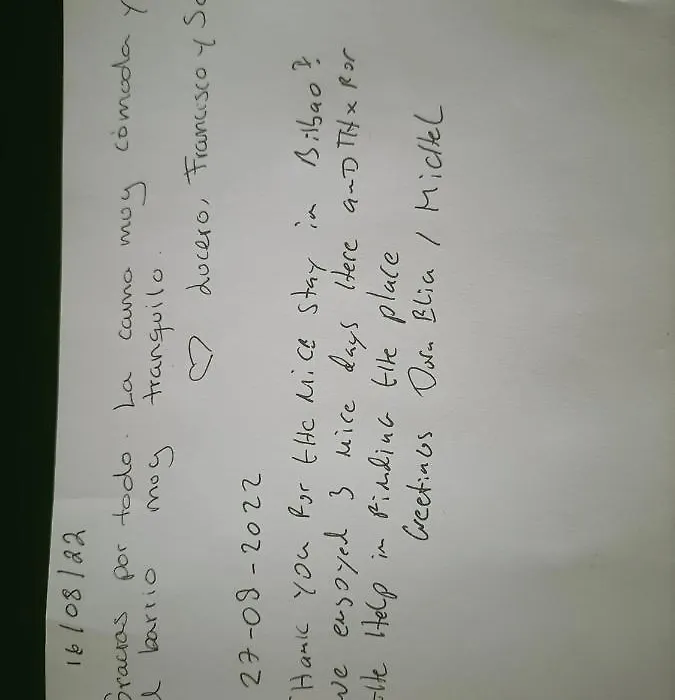 16/08/22
Gracias por todo. La cama muy cómoda y
el barrio muy tranquilo.
♡ Lucero, Francisco y
27-09-2022
Thank you for the Nice stay in Bilbao!
we enjoyed 3 nice days Here anD THx for
the Help in Finding the place
Greetings / Michel